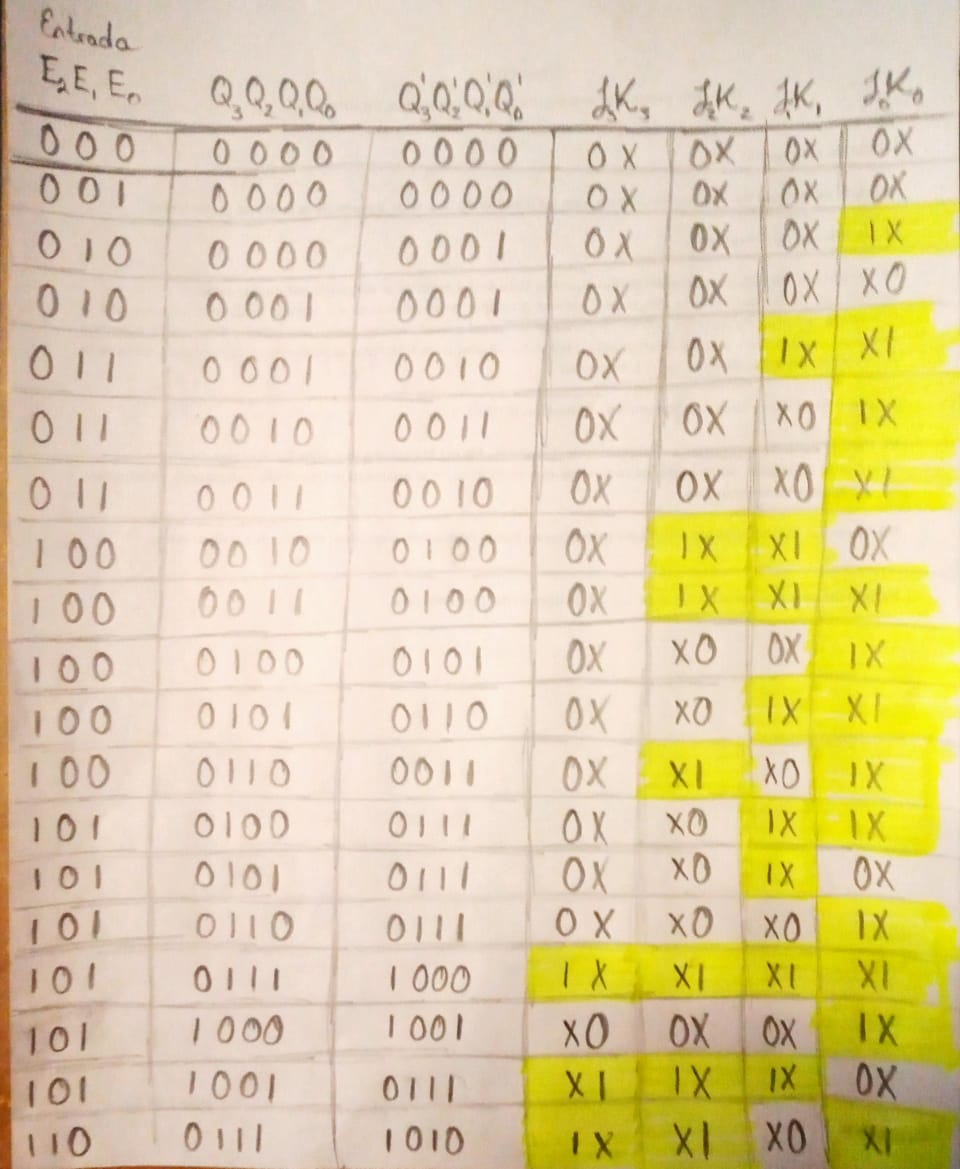 Entrada
E₂E₁E₀ Q₃Q₂Q₁Q₀ Q₃'Q₂'Q₁'Q₀' J₃K₃ J₂K₂ J₁K₁ J₀K₀
000 0000 0000 0X 0X 0X 0X
001 0000 0000 0X 0X 0X 0X
010 0000 0001 0X 0X 0X 1X
010 0001 0001 0X 0X 0X X0
011 0001 0010 0X 0X 1X X1
011 0010 0011 0X 0X X0 1X
011 0011 0010 0X 0X X0 X1
100 0010 0100 0X 1X X1 0X
100 0011 0100 0X 1X X1 X1
100 0100 0101 0X X0 0X 1X
100 0101 0110 0X X0 1X X1
100 0110 0011 0X X1 X0 1X
101 0100 0111 0X X0 1X 1X
101 0101 0111 0X X0 1X 0X
101 0110 0111 0X X0 X0 1X
101 0111 1000 1X X1 X1 X1
101 1000 1001 X0 0X 0X 1X
101 1001 0111 X1 1X 1X 0X
110 0111 1010 1X X1 X0 X1